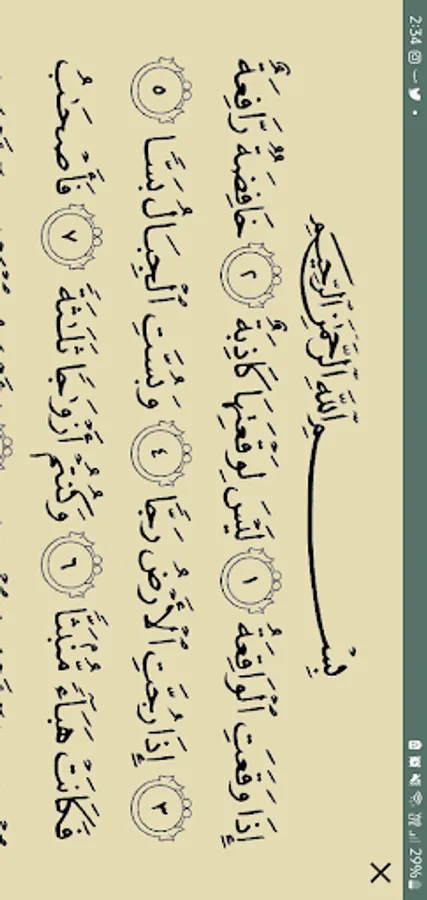 2:34
29%
بِسْمِ ٱللَّهِ ٱلرَّحْمَٰنِ ٱلرَّحِيمِ
إِذَا وَقَعَتِ ٱلْوَاقِعَةُ ١ لَيْسَ لِوَقْعَتِهَا كَاذِبَةٌ ٢ خَافِضَةٌ رَّافِعَةٌ
٣ إِذَا رُجَّتِ ٱلْأَرْضُ رَجًّا ٤ وَبُسَّتِ ٱلْجِبَالُ بَسًّا ٥
فَكَانَتْ هَبَآءً مُّنۢبَثًّا ٦ وَكُنتُمْ أَزْوَٰجًا ثَلَٰثَةً ٧ فَأَصْحَٰبُ